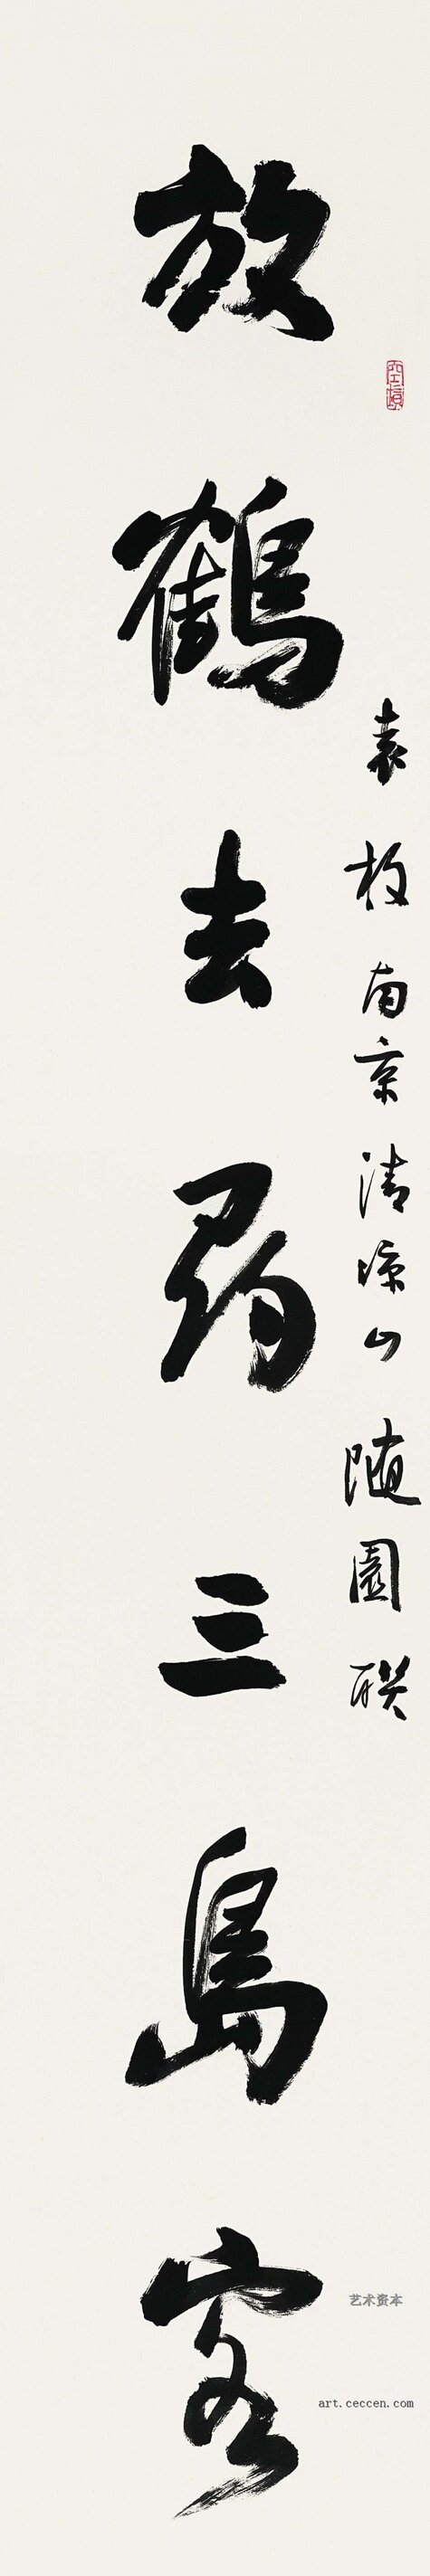 袁枚南京清涼山随園聯
放鶴去尋三島客
艺术资本
art.ceccen.com